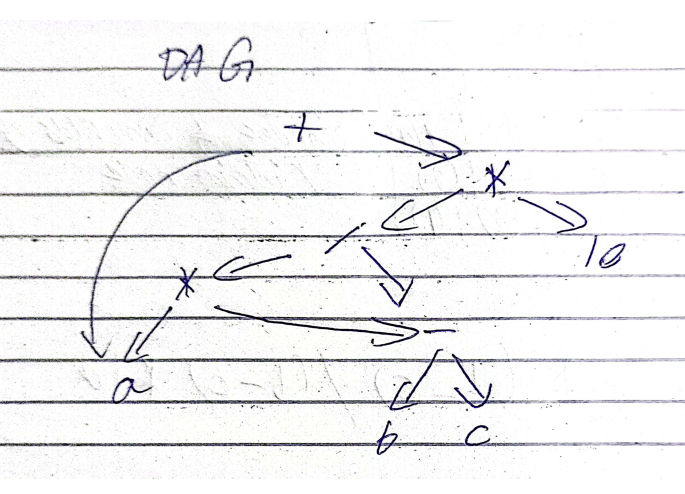 DAG
+
*
/
10
*
-
a
b c